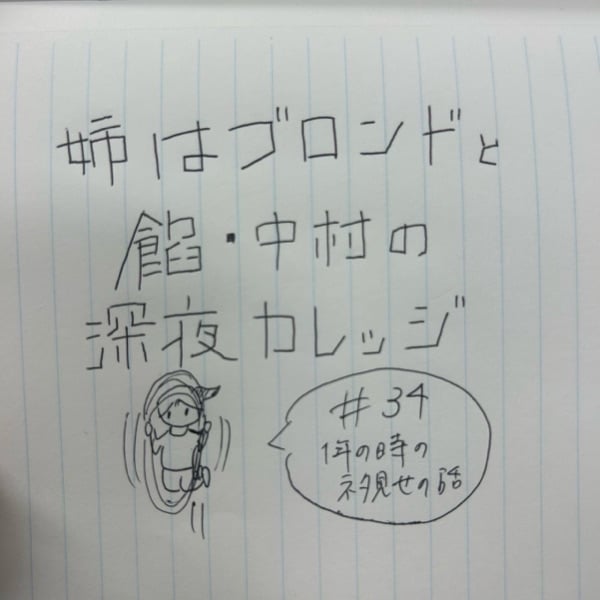 姉はブロンドと
餡・中村の
深夜カレッジ
#34
1年の時の
ネタ見せの話